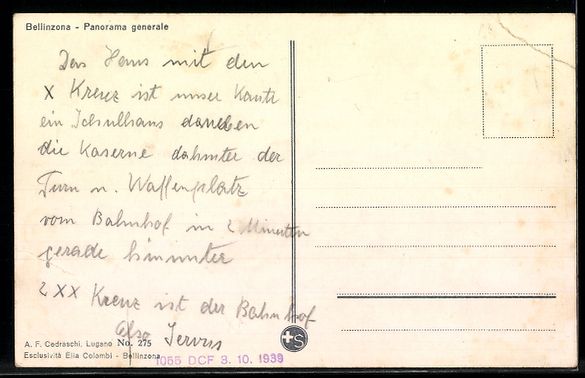 Bellinzona - Panorama generale
Das Haus mit dem
X Kreuz ist unser Kanti
ein Schulhaus daneben
die Kaserne dahinter der
Turn u. Waffenplatz
vom Bahnhof in 2 Minuten
gerade hinunter
2 XX Kreuz ist der Bahnhof
Also Servus
A. F. Cedraschi, Lugano No. 275
Esclusività Elia Colombi - Bellinzona
1055 DCF 3. 10. 1939
+S